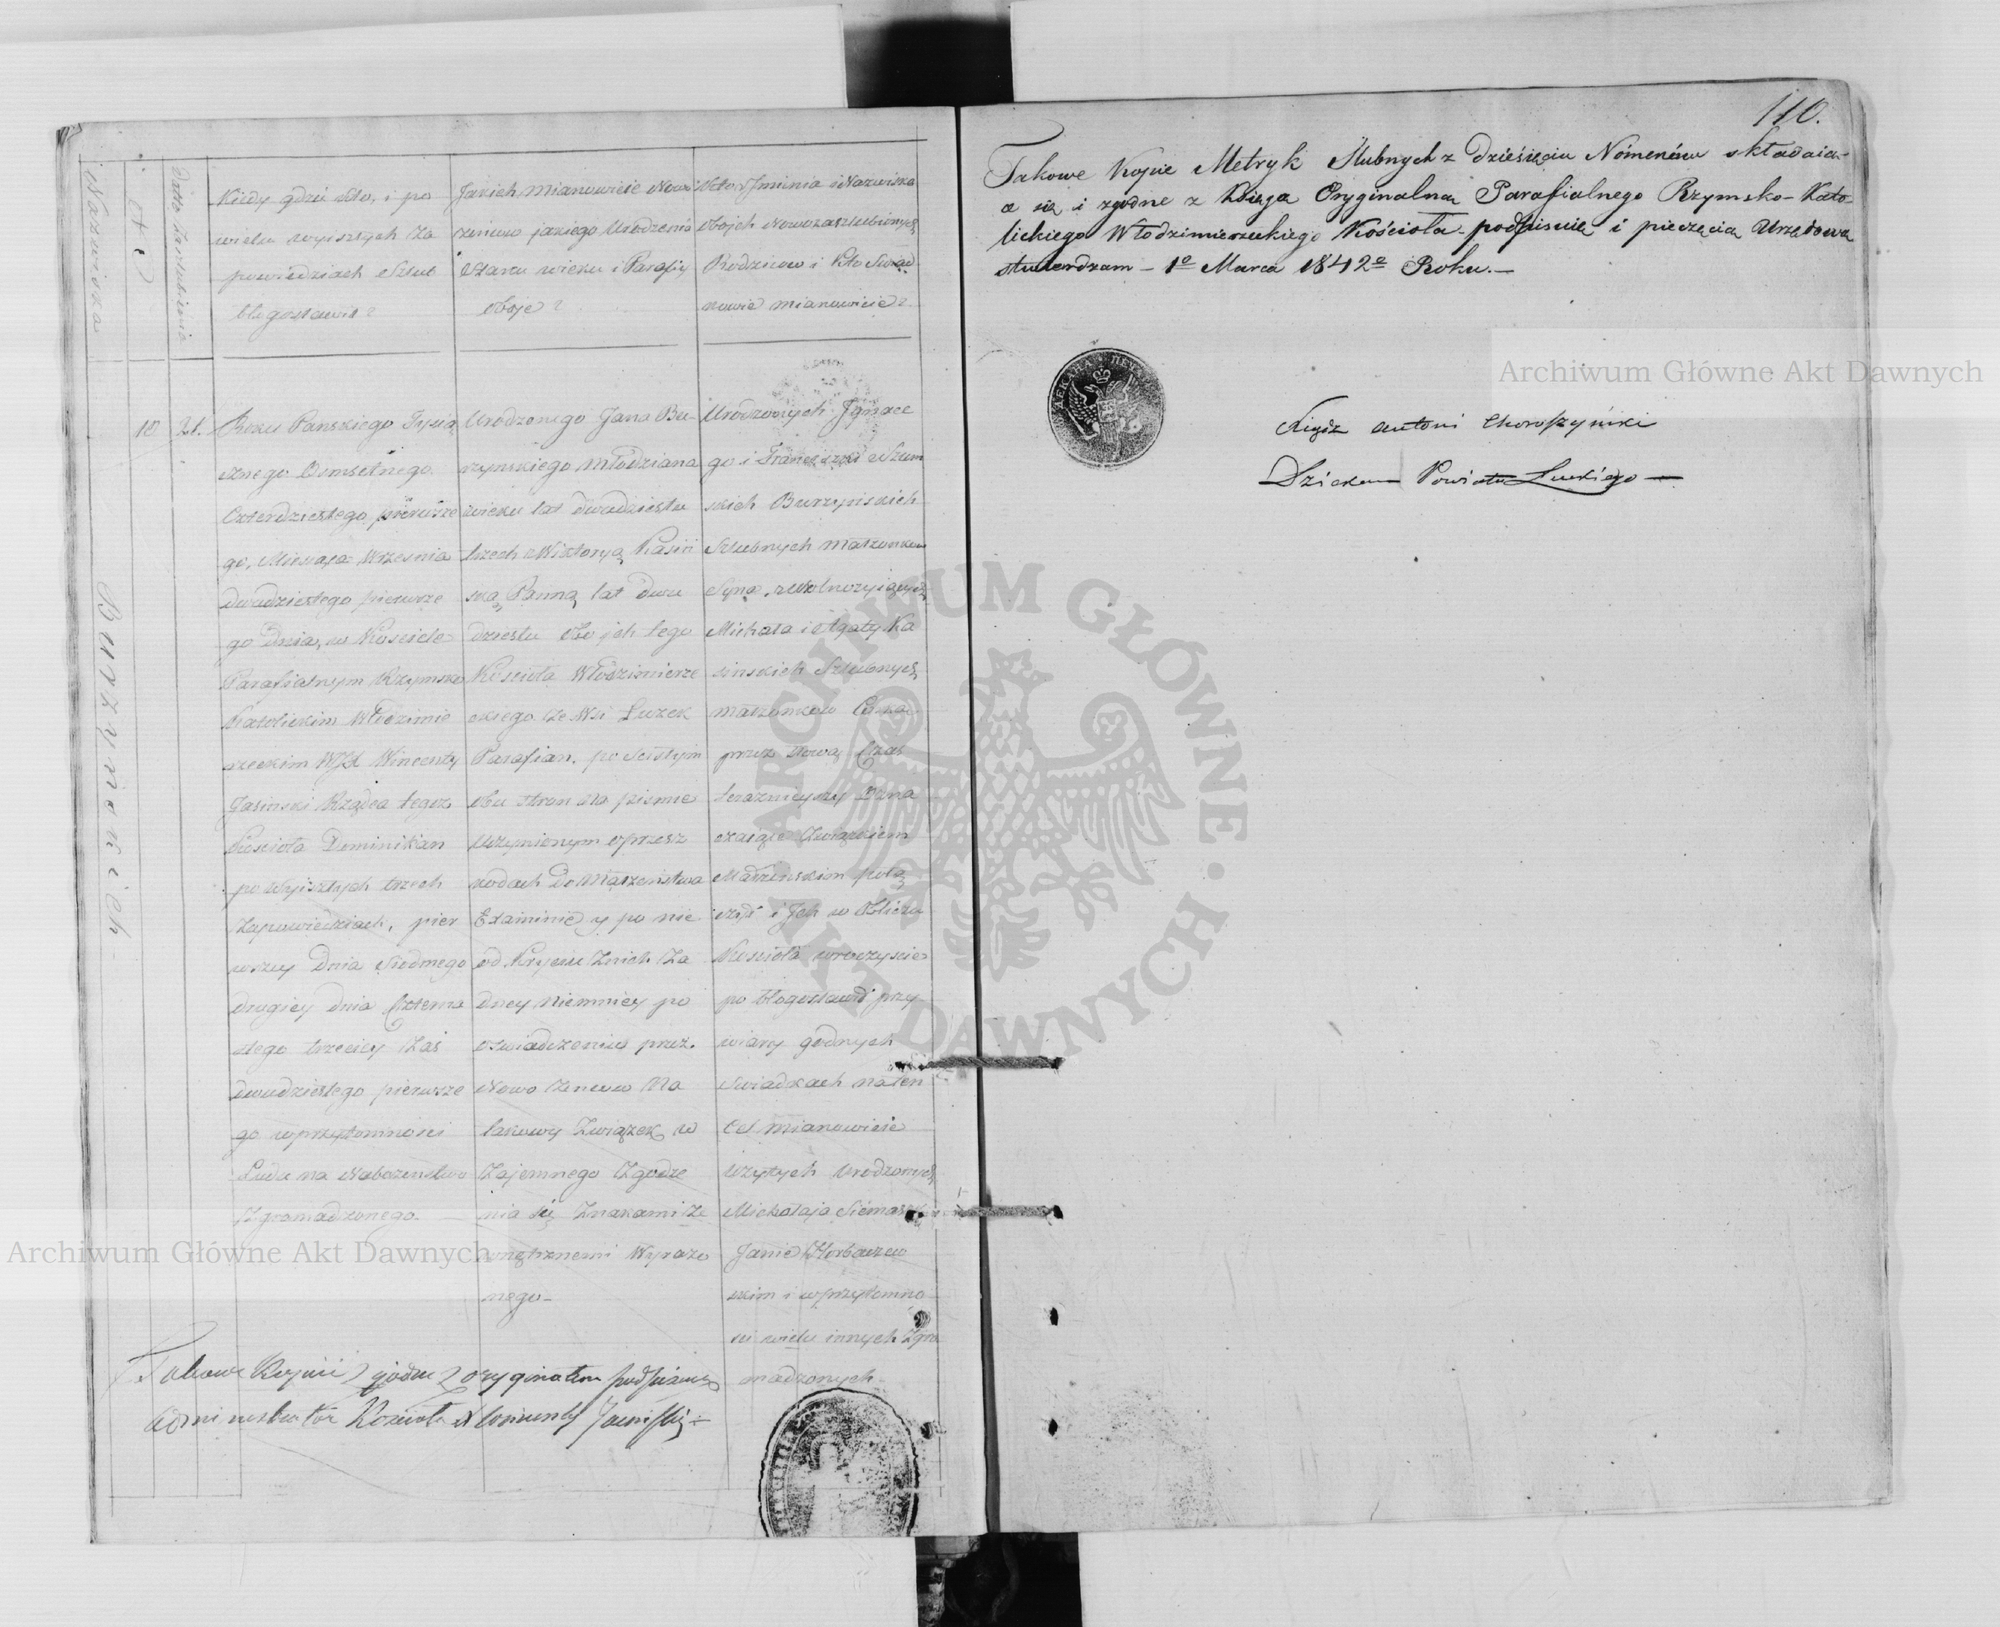 Nazwiska
№
Data Zaślubienia
Kiedy gdzie kto, i po
wielu wyiszłych Za
powiedziach Szlub
błogosławił?
Jakich mianowicie Nowo
żeńców jakiego Urodzenia
Stanu wieku i Parafiy
oboje?
Kto z Jmienia i Nazwiska
obojch Nowozaszlubionych
Rodziców i Kto Swiad
kowie mianowicie?
Burzynskich
10
21.
Roku Pańskiego Tysią
cznego Osmsetnego
Czterdziestego pierwsze
go, Miesiąca Wrzesnia
dwudziestego pierwsze
go Dnia, w Kosciele
Parafialnym Rzymsko
Katolickim Włodzimie
rzeckim WJX Wincenty
Jasinski Rządca tegoż
Koscioła Dominikan
po wyiszłych trzech
Zapowiedziach, pier
wszey Dnia Siodmego
drugiey dnia Czterna
stego trzeciey Zaś
dwudziestego pierwsze
go w przytomnosci
Ludu na Nabożenstwo
Zgromadzonego.
Urodzonego Jana Bu-
rzynskiego Młodziana
wieku lat dwudziestu
trzech z Wiktoryą Kasin
ską Panną lat dwu
dziestu Obojch tego
Kosciola Włodzimierze
ckiego Ze Wsi Luzek
Parafian. po scisłym
obu stron na pismie
Uczynionym o przesz
kodach do Małżeństwa
Examinie y po nie
od kryciu Żnich Ża
dney niemniey po
oswiadczeniu przez.
Nowo Żencow Na
takowy Związek w
Zajemnego Zgodze
nia się Znakami Ze
wnętrznemi Wyrazo
nego-
Urodzonych Jgnace
go i Franciszki Szum
skich Burzynskich
Szlubnych małżonkow
Syna, z Wolnozyiących
Michała i Agaty Ka
sinskich Szlubnych
małżonkow Corką
przez słowa Czas
terazniejszy Ozna
czaiące Związkiem
Małżenskim połą
czył i Jch w Obliczu
Kosciola uroczyscie
po błogosławił przy
wiary godnych
Swiadkach na ten
Cel mianowicie
użytych Urodzonych
Michołaja Siemaszk
Janie Horbaczew
skim i w przytomno
sci wielu innych Zgro
madzonych
Takowe Kopiie Zgodne z oryginałem podpisuię
Administrator Kościoła X Wincenty Jasinski
110.
Takowe Kopije Metryk Ślubnych z Dziesięciu Nómenów składaia-
ce się i zgodne z Księgą Oryginalną Parafialnego Rzymsko-Kato-
lickiego Włodzimierzeckiego Kościoła podpisuię i pieczęcią Urzędową
stwierdzam - 1º Marca 1842º Roku.-
Xiądz Antoni Choroszyński
Dziekan Powiatu Łuckiego
Archiwum Główne Akt Dawnych
ARCHIWUM GŁÓWNE · AKT DAWNYCH ·
Archiwum Główne Akt Dawnych